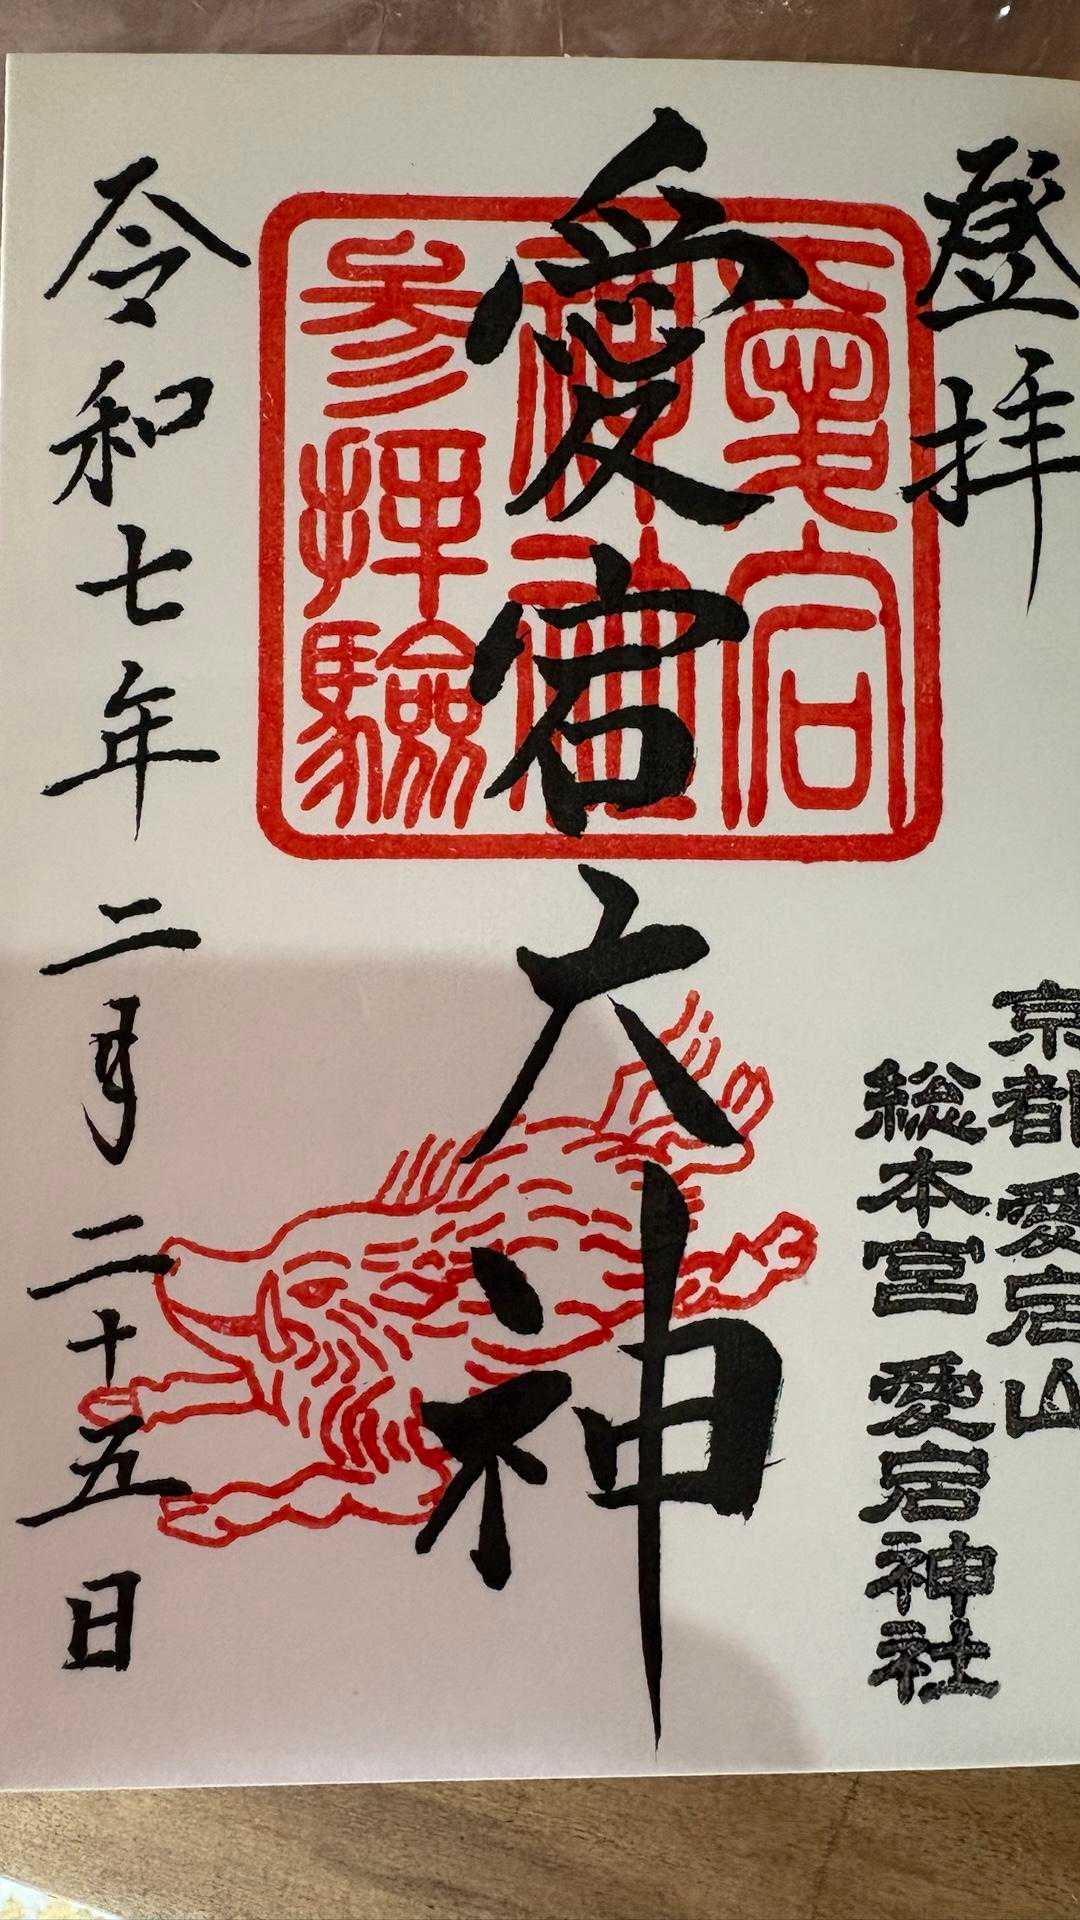 登拝
京都 愛宕山
総本宮 愛宕神社
愛宕大神
愛宕
神社
参拝驗
令和七年二月二十五日